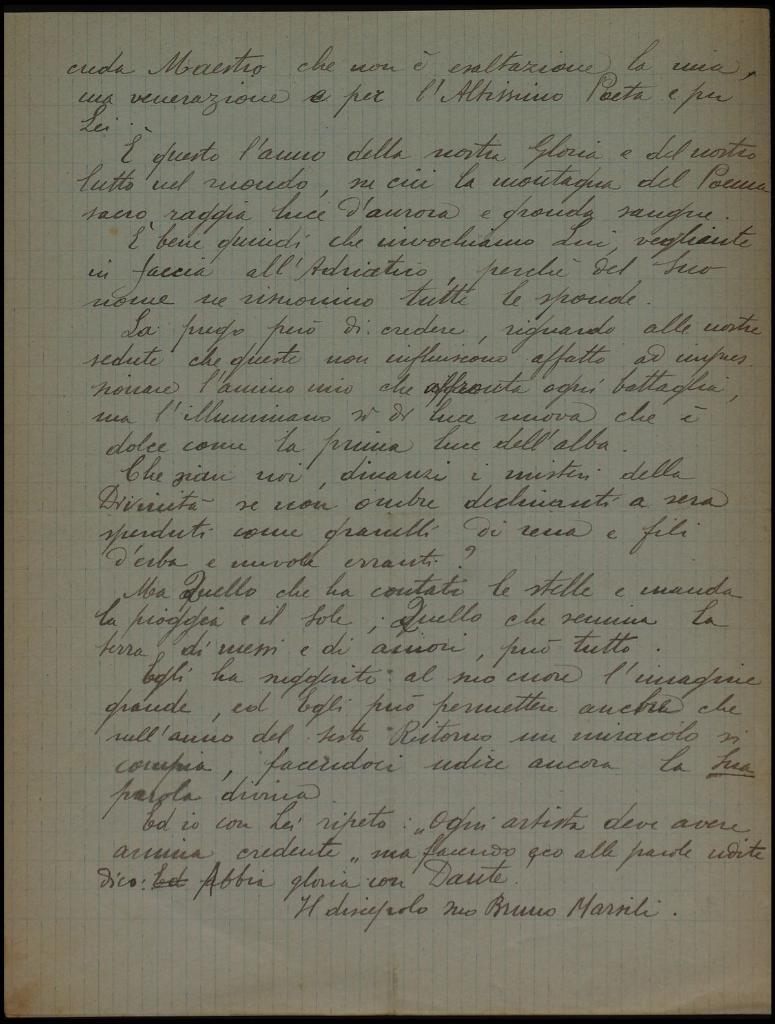 creda Maestro che non è esaltazione la mia,
ma venerazione e per l'Altissimo Poeta e per
Lei.
È questo l'anno della nostra Gloria e del nostro
lutto nel mondo, su cui la montagna del Poema
sacro raggia luce d'aurora e gronda sangue.
È bene quindi che invochiamo Lui, vegliante
in faccia all'Adriatico, perchè del Suo
nome ne risuonino tutte le sponde.
La prego però di credere, riguardo alle nostre
sedute che queste non influiscono affatto ad impres
sionare l'animo mio che affronta ogni battaglia,
ma l'illuminano sì di luce nuova che è
dolce come la prima luce dell'alba.
Che siam noi, dinanzi i misteri della
Divinità se non ombre declinanti a sera
sperduti come granelli di rena e fili
d'erba e nuvola erranti?
Ma Quello che ha contati le stelle e manda
la pioggia e il sole, Quello che semina la
terra di messi e di amori, può tutto.
Egli ha suggerito al suo cuore l'imagine
grande, ed Egli può permettere ancora che
nell'anno del sesto Ritorno un miracolo si
compia, facendoci udire ancora la Sua
parola divina
Ed io con Lei ripeto: "Ogni artista deve avere
anima credente" ma facendo eco alle parole udite
dico: Ed Abbia gloria con Dante.
Il discepolo suo Bruno Marsili.